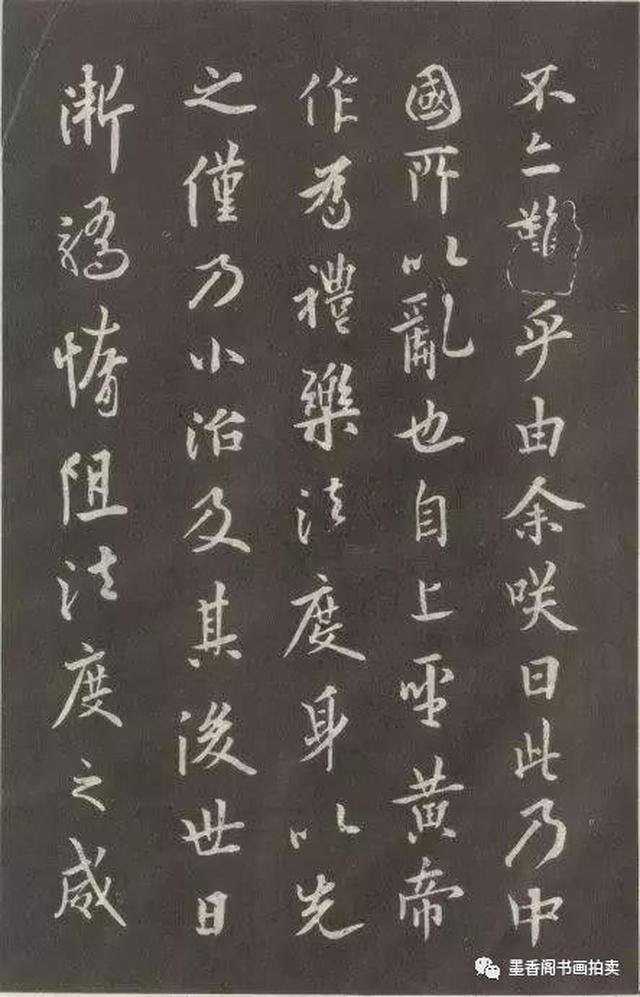 不亦難乎由余咲曰此乃中
國所以亂也自上聖黄帝
作為禮樂法度身以先
之僅乃小治及其後世日
漸驕惰阻法度之威
墨香阁书画拍卖